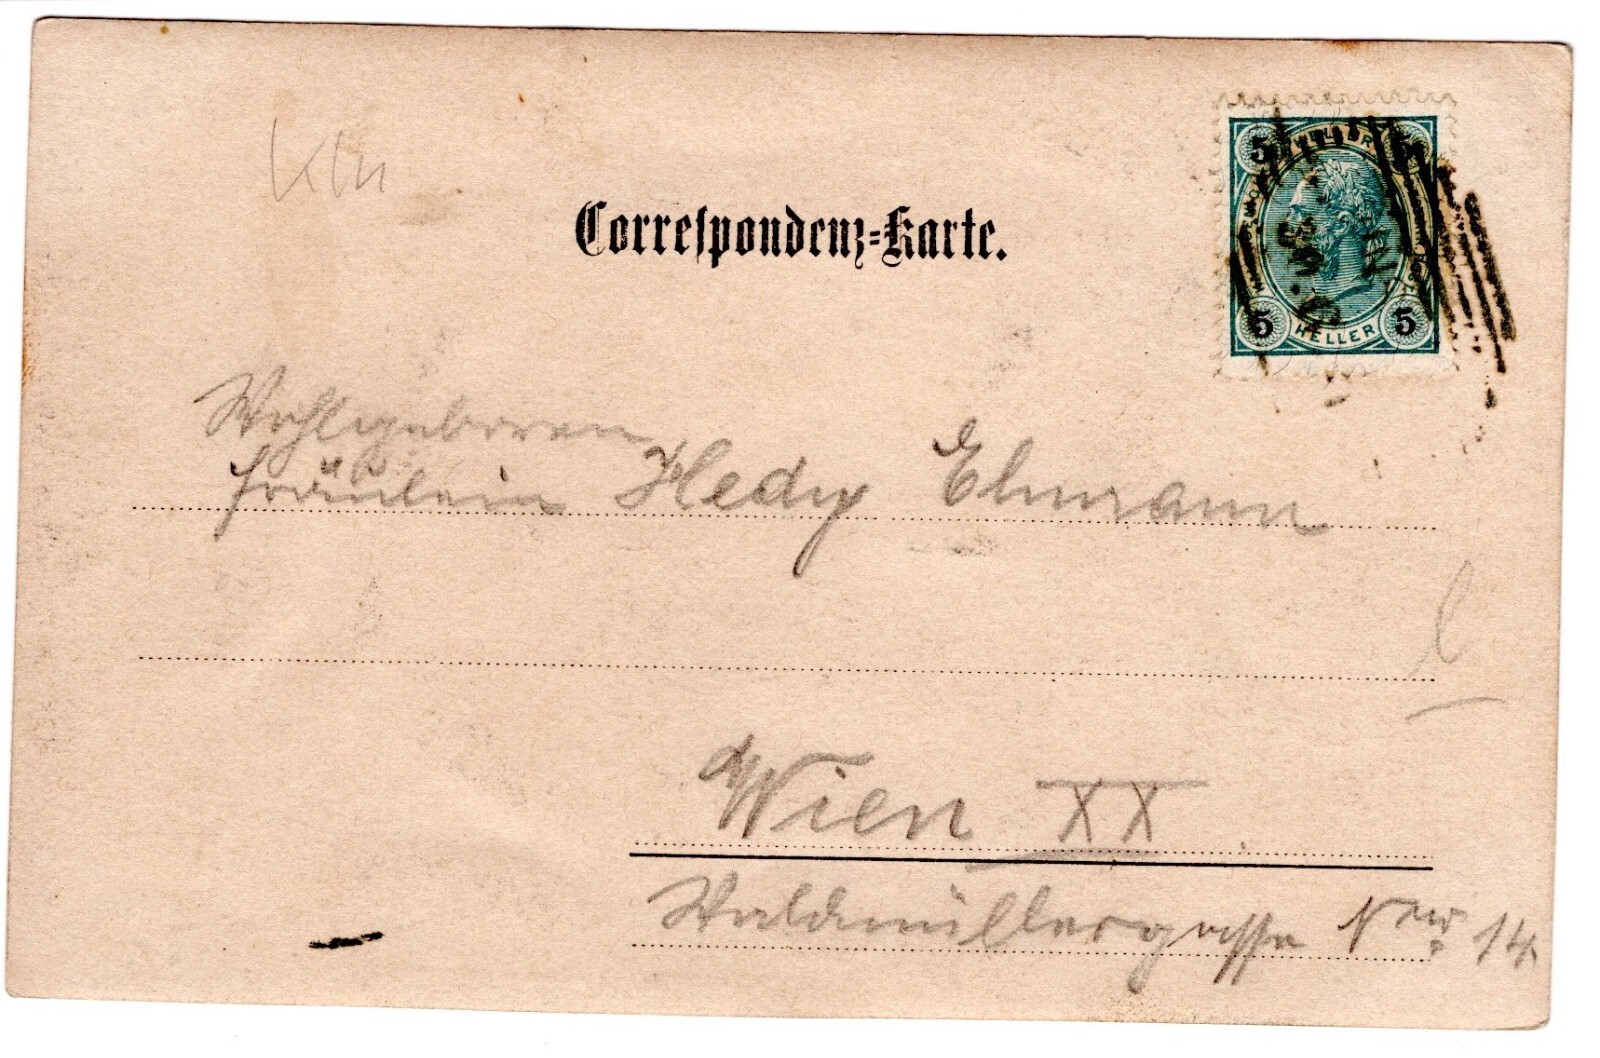 Correspondenz-Karte.
5 5
5 HELLER 5
Wohlgeboren
Fräulein Hedy Ehmann
Wien XX
Waldmüllergasse Nro. 14.